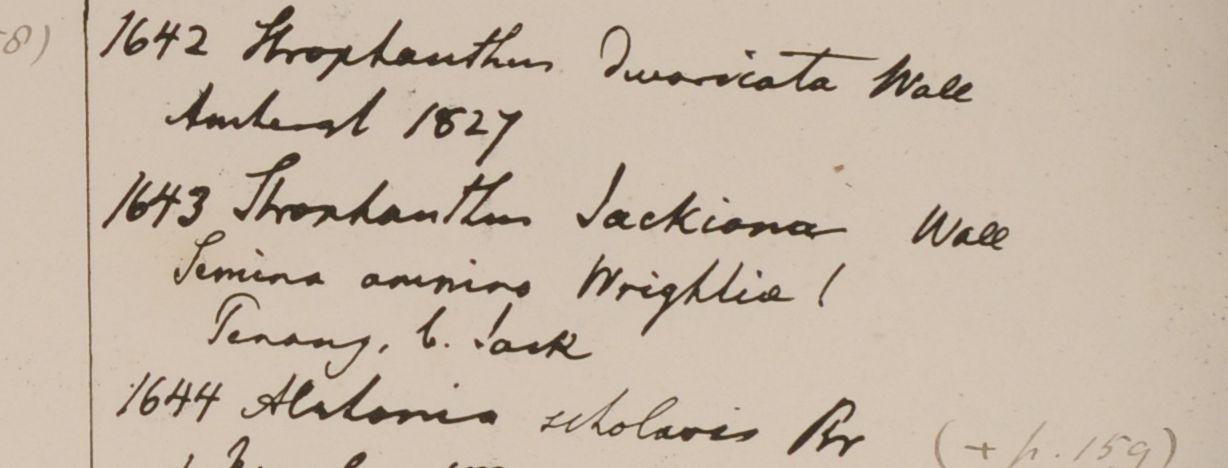 8)
1642 Strophanthus divaricata Wall
Amherst 1827
1643 Strophanthus Jackiana Wall
Semina omnino Wrightiæ!
Penang, G. Jack
1644 Alstonia scholaris Br (+ p. 159)